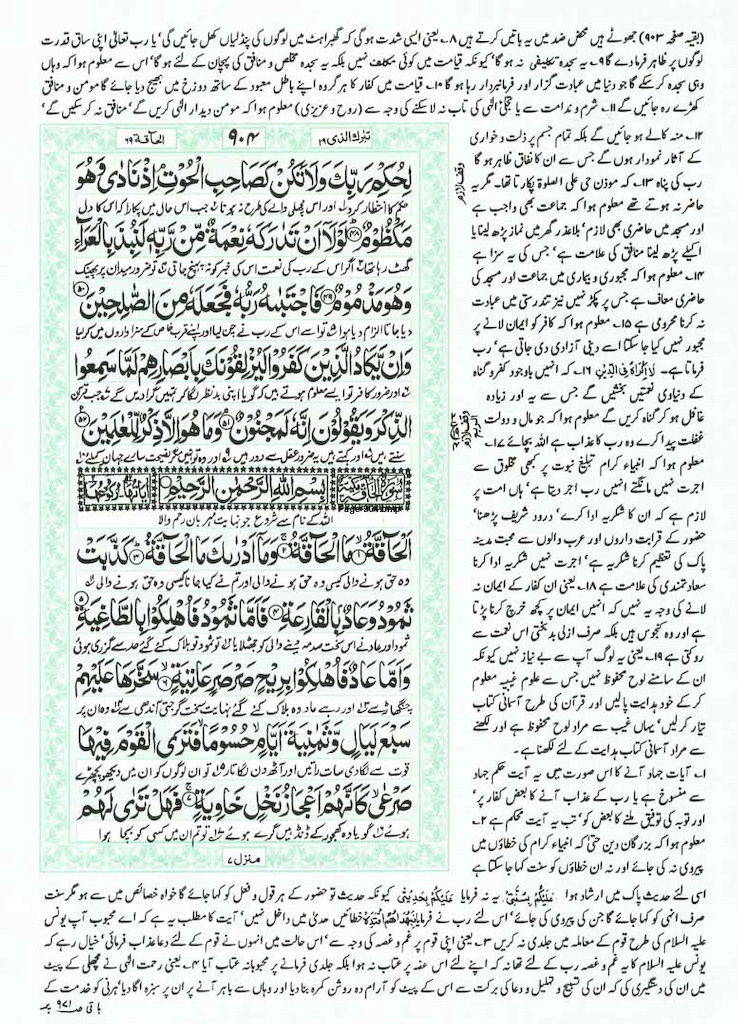 (بقیہ صفحہ ۹۰۳) جھوٹے ہیں محض ضد میں یہ باتیں کرتے ہیں ۸۔ یعنی ایسی شدت ہو گی کہ گھبراہٹ میں لوگوں کی پنڈلیاں کھل جائیں گی' یا رب تعالیٰ اپنی ساق قدرت
لوگوں پر ظاہر فرما دے گا ۹۔ یہ سجدہ تکلیفی نہ ہو گا' کیونکہ قیامت میں کوئی مکلف نہیں بلکہ یہ سجدہ مخلص و منافق کی پہچان کے لئے ہو گا' اس سے معلوم ہوا کہ وہاں
وہی سجدہ کر سکے گا جو دنیا میں عبادت گزار اور فرمانبردار رہا ہو گا ۱۰۔ قیامت میں کفار کا ہر گروہ اپنے باطل معبود کے ساتھ دوزخ میں بھیج دیا جائے گا مومن و منافق
کھڑے رہ جائیں گے ۱۱۔ شرم و ندامت سے یا تجلیٔ الٰہی کی تاب نہ لا سکنے کی وجہ سے (روح و عزیزی) معلوم ہوا کہ مومن دیدار الٰہی کریں گے' منافق نہ کر سکیں گے'
تبرك الذی ۲۹
۹۰۴
الحاقة ۶۹
لِحُكْمِ رَبِّكَ وَلَا تَكُنْ كَصَاحِبِ الْحُوْتِ اِذْ نَادٰى وَهُوَ
حکم کا انتظار کرو اور اس مچھلی والے کی طرح نہ ہونا جب اس حال میں پکارا کہ اس کا دل
مَكْظُوْمٌ ۴۸ لَوْلَاۤ اَنْ تَدٰرَكَهٗ نِعْمَةٌ مِّنْ رَّبِّهٖ لَنُبِذَ بِالْعَرَآءِ
گھٹ رہا تھا اگر اس کے رب کی نعمت اس کی خبر کو نہ پہنچ جاتی تو ضرور میدان پر پھینک
وَهُوَ مَذْمُوْمٌ ۴۹ فَاجْتَبٰىهُ رَبُّهٗ فَجَعَلَهٗ مِنَ الصّٰلِحِيْنَ ۵۰
دیا جاتا الزام دیا ہوا تو اسے اس کے رب نے چن لیا اور اپنے قرب خاص کے سزاواروں میں کر لیا
وَاِنْ يَّكَادُ الَّذِيْنَ كَفَرُوْا لَيُزْلِقُوْنَكَ بِاَبْصَارِهِمْ لَمَّا سَمِعُوا
اور ضرور کافر تو ایسے معلوم ہوتے ہیں کہ گویا اپنی بد نظر لگا کر تمہیں گرا دیں گے جب قرآن
الذِّكْرَ وَيَقُوْلُوْنَ اِنَّهٗ لَمَجْنُوْنٌ ۵۱ وَمَا هُوَ اِلَّا ذِكْرٌ لِّلْعٰلَمِيْنَ ۵۲
سنتے ہیں اور کہتے ہیں یہ ضرور عقل سے دور ہیں اور وہ تو نہیں مگر نصیحت سارے جہان کے لئے
بِسْمِ اللّٰهِ الرَّحْمٰنِ الرَّحِيْمِ
Page-904.bmp
اللہ کے نام سے شروع جو نہایت مہربان رحم والا
اَلْحَآقَّةُ ۱ مَا الْحَآقَّةُ ۲ وَمَاۤ اَدْرٰىكَ مَا الْحَآقَّةُ ۳ كَذَّبَتْ
وہ حق ہونے والی کیسی وہ حق ہونے والی اور تم نے کیا جانا کیسی وہ حق ہونے والی
ثَمُوْدُ وَعَادٌۢ بِالْقَارِعَةِ ۴ فَاَمَّا ثَمُوْدُ فَاُهْلِكُوْا بِالطَّاغِيَةِ ۵
ثمود اور عاد نے اس سخت صدمہ دینے والی کو جھٹلایا تو ثمود تو ہلاک کئے گئے حد سے گزری ہوئی
وَاَمَّا عَادٌ فَاُهْلِكُوْا بِرِيْحٍ صَرْصَرٍ عَاتِيَةٍ ۶ سَخَّرَهَا عَلَيْهِمْ
چنگھاڑ سے اور رہے عاد وہ ہلاک کئے گئے نہایت سخت گرجتی آندھی سے وہ ان پر
سَبْعَ لَيَالٍ وَّثَمٰنِيَةَ اَيَّامٍ حُسُوْمًا فَتَرَى الْقَوْمَ فِيْهَا
قوت سے لگا دی سات راتیں اور آٹھ دن لگاتار تو ان لوگوں کو ان میں دیکھو پچھڑے
صَرْعٰى كَاَنَّهُمْ اَعْجَازُ نَخْلٍ خَاوِيَةٍ ۷ فَهَلْ تَرٰى لَهُمْ
ہوئے گویا وہ کھجور کے ڈنڈ ہیں گرے ہوئے تو تم ان میں کسی کو بچا ہوا
منزل ۷
وقف لازم
۱۲۔ منہ کالے ہو جائیں گے بلکہ تمام جسم پر ذلت و خواری
کے آثار نمودار ہوں گے جس سے ان کا نفاق ظاہر ہو گا
رب کی پناہ ۱۳۔ کہ موذن حی علی الصلوٰۃ پکارتا تھا۔ مگر یہ
حاضر نہ ہوتے تھے معلوم ہوا کہ جماعت بھی واجب ہے
اور مسجد میں حاضری بھی لازم' بلا عذر گھر میں نماز پڑھ لینا یا
اکیلے پڑھ لینا منافق کی علامت ہے' جس کی یہ سزا ہے
۱۴۔ معلوم ہوا کہ مجبوری و بیماری میں جماعت اور مسجد کی
حاضری معاف ہے جس پر پکڑ نہیں نیز تندرستی میں عبادت
نہ کرنا محرومی ہے ۱۵۔ معلوم ہوا کہ کافر کو ایمان لانے پر
مجبور نہیں کیا جا سکتا اسے دینی آزادی دی جاتی ہے' رب
فرماتا ہے۔ لَاۤ اِكْرَاهَ فِى الدِّيْنِ ۱۶۔ کہ انہیں باوجود کفر و گناہ
کے دنیاوی نعمتیں بخشیں گے جس سے یہ اور زیادہ
غافل ہو کر گناہ کریں گے معلوم ہوا کہ جو مال و دولت
غفلت پیدا کرے وہ رب کا عذاب ہے اللہ بچائے ۱۷۔
معلوم ہوا کہ انبیاء کرام تبلیغ نبوت پر کبھی مخلوق سے
اجرت نہیں مانگتے انہیں رب اجر دیتا ہے' ہاں امت پر
لازم ہے کہ ان کا شکریہ ادا کرے' درود شریف پڑھنا'
حضور کے قرابت داروں اور عرب والوں سے محبت مدینہ
پاک کی تعظیم کرنا شکریہ ہے' اجرت نہیں شکریہ ادا کرنا
سعادتمندی کی علامت ہے ۱۸۔ یعنی ان کفار کے ایمان نہ
لانے کی وجہ یہ نہیں کہ انہیں ایمان پر کچھ خرچ کرنا پڑتا
ہے اور وہ کنجوس ہیں بلکہ صرف ازلی بدبختی اس نعمت سے
روکتی ہے ۱۹۔ یعنی یہ لوگ آپ سے بے نیاز نہیں کیونکہ
ان کے سامنے لوح محفوظ نہیں جس سے علوم غیبیہ معلوم
کر کے خود ہدایت پا لیں اور قرآن کی طرح آسمانی کتاب
تیار کر لیں' یہاں غیب سے مراد لوح محفوظ ہے اور لکھنے
سے مراد آسمانی کتاب ہدایت کے لئے لکھنا ہے۔
۱۔ آیات جہاد آنے کا اس صورت میں یہ آیت حکم جہاد
سے منسوخ ہے یا رب کے عذاب آنے کا بعض کفار پر'
اور توبہ کی توفیق ملنے کا بعض کو' تب یہ آیت محکم ہے ۲۔
معلوم ہوا کہ بزرگان دین حتیٰ کہ انبیاء کرام کی خطاؤں میں
پیروی نہ کی جائے اور نہ ان خطاؤں کو سنت کہا جا سکتا ہے
اسی لئے حدیث پاک میں ارشاد ہوا عَلَيْكُمْ بِسُنَّتِىْ۔ یہ نہ فرمایا عَلَيْكُمْ بِحَدِيْثِىْ کیونکہ حدیث تو حضور کے ہر قول و فعل کو کہا جائے گا خواہ خصائص میں سے ہو مگر سنت
صرف انہی کو کہا جائے گا جن کی پیروی کی جائے' اس لئے رب نے فرمایا فَبِهُدٰهُمُ اقْتَدِهْ خطائیں ھدیٰ میں داخل نہیں' آیت کا مطلب یہ ہے کہ اے محبوب آپ یونس
علیہ السلام کی طرح قوم کے معاملہ میں جلدی نہ کریں ۳۔ یعنی اپنی قوم پر غم و غصہ کی وجہ سے' اس حالت میں انہوں نے قوم کے لئے دعا عذاب فرمائی' خیال رہے کہ
یونس علیہ السلام کا یہ غم و غصہ رب کے لئے تھا نہ کہ اپنے لئے اس غصہ پر عتاب نہ ہوا بلکہ جلدی فرمانے پر محبوبانہ عتاب آیا ۴۔ یعنی رحمت الٰہی نے مچھلی کے پیٹ
میں ان کی دستگیری کی کہ ان کی تسبیح و تہلیل و دعا کی برکت سے اس کے پیٹ کو آرام دہ روشن کمرہ بنا دیا اور وہاں سے باہر آنے پر ان پر سبزہ اگا دیا' ہرنی کو خدمت کے
باقی صـ ۹۷۱ پر